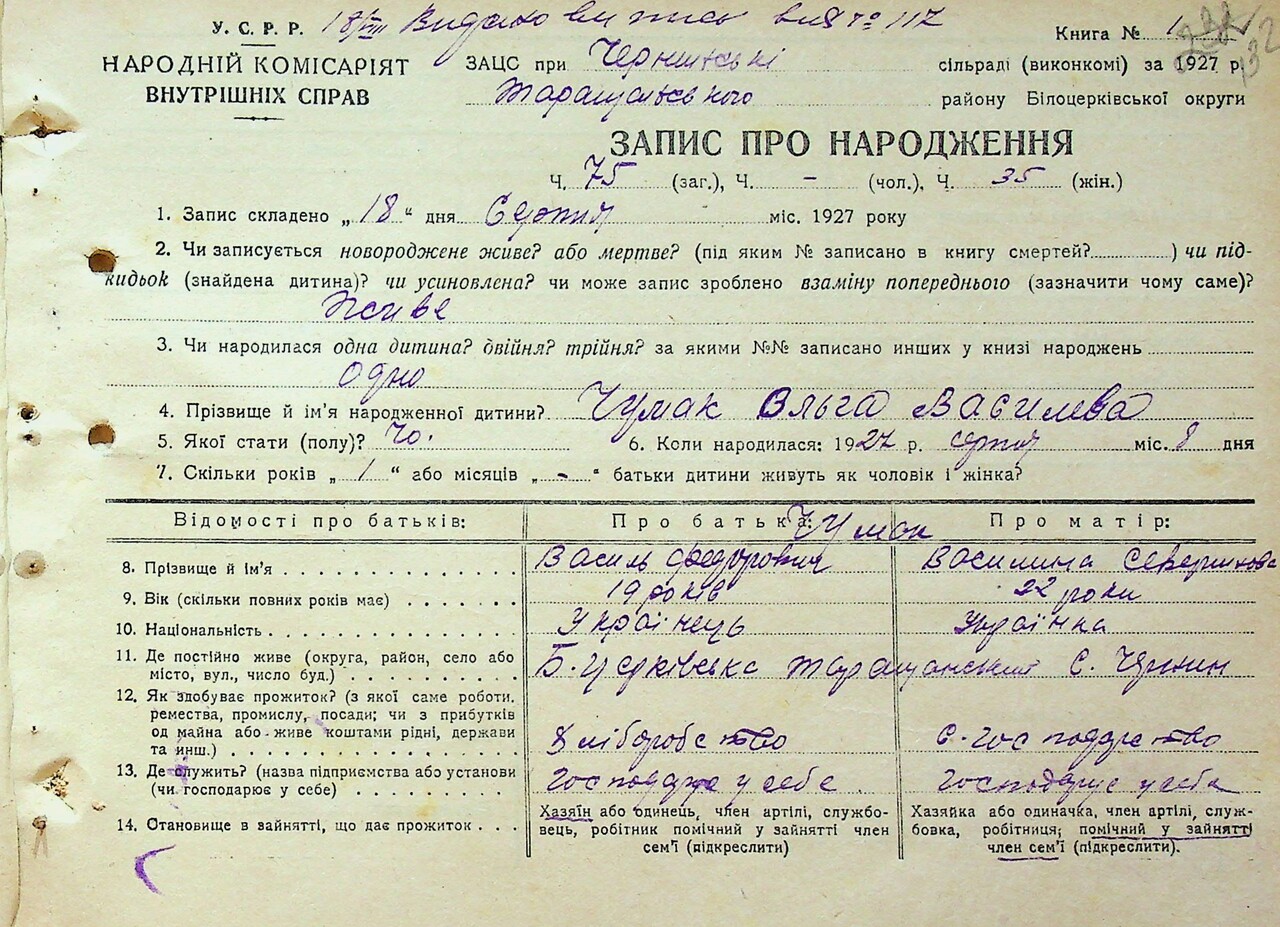 У. С. Р. Р. 18/VIII Видано випись за № 117
Книга № 1
НАРОДНІЙ КОМІСАРІЯТ
ВНУТРІШНІХ СПРАВ
ЗАЦС при сільраді (виконкомі) за 1927 р.
району Білоцерківської округи
ЗАПИС ПРО НАРОДЖЕННЯ
Ч. 75 (заг.), Ч. - (чол.), Ч. 35 (жін.)
1. Запис складено „ 18 “ дня Серпня міс. 1927 року
2. Чи записується новороджене живе? або мертве? (під яким № записано в книгу смертей?) чи під-
кидьок (знайдена дитина)? чи усиновлена? чи може запис зроблено взаміну попереднього (зазначити чому саме)?
Живе
3. Чи народилася одна дитина? двійня? трійня? за якими №№ записано инших у книзі народжень
Одно
4. Прізвище й ім’я народженної дитини? Чумак Ольга Василева
5. Якої стати (полу)? 6. Коли народилася: 1927 р. серпня міс. 8 дня
7. Скільки років „ 1 “ або місяців „ - “ батьки дитини живуть як чоловік і жінка?
Відомості про батьків: Про батька: Чумак Про матір:
8. Прізвище й ім’я Василь Федорович Василина Северинова
9. Вік (скільки повних років має) 19 років 22 роки
10. Національність Українець Українка
11. Де постійно живе (округа, район, село або
місто, вул., число буд.) Б. Церківська Таращанський с. Чернин
12. Як здобуває прожиток? (з якої саме роботи,
ремества, промислу, посади; чи з прибутків
од майна або живе коштами рідні, держави
та инш.) Хліборобство С. господарство
13. Де служить? (назва підприємства або установи
(чи господарює у себе) Господарює у себе Господарює у себе
14. Становище в зайнятті, що дає прожиток
Хазяїн або одинець, член артілі, службо-
вець, робітник помічний у зайнятті член
сем’ї (підкреслити)
Хазяйка або одиначка, член артілі, служ-
бовка, робітниця; помічний у зайнятті
член сем’ї (підкреслити).